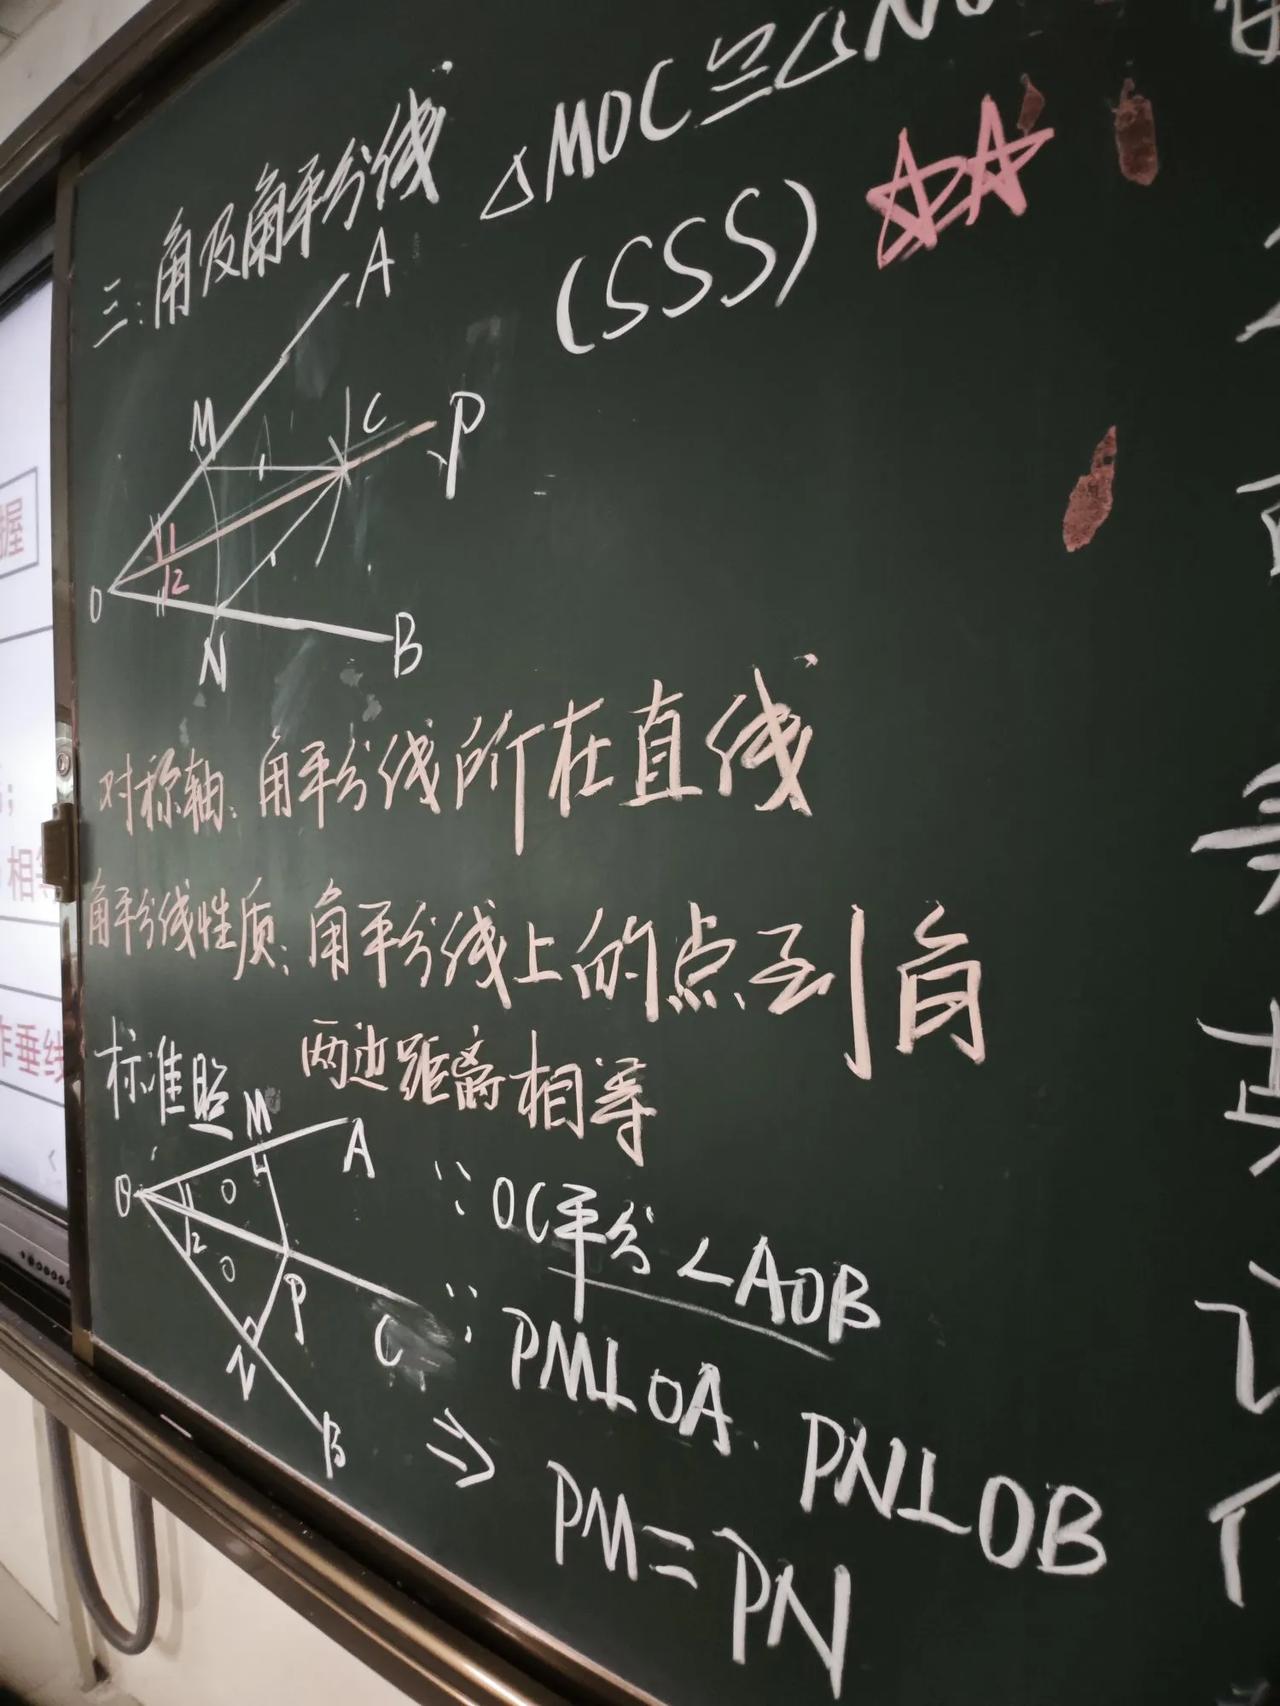 三:角及角平分线
△MOC≌△N
(SSS)
A
M
C
P
1
2
O
N
B
对称轴:角平分线所在直线
角平分线性质:角平分线上的点到角
两边距离相等
标准照
M
A
O
1
2
P
C
N
B
∵OC平分∠AOB
∵PM⊥OA.PN⊥OB
⇒PM=PN
握
相等
作垂线